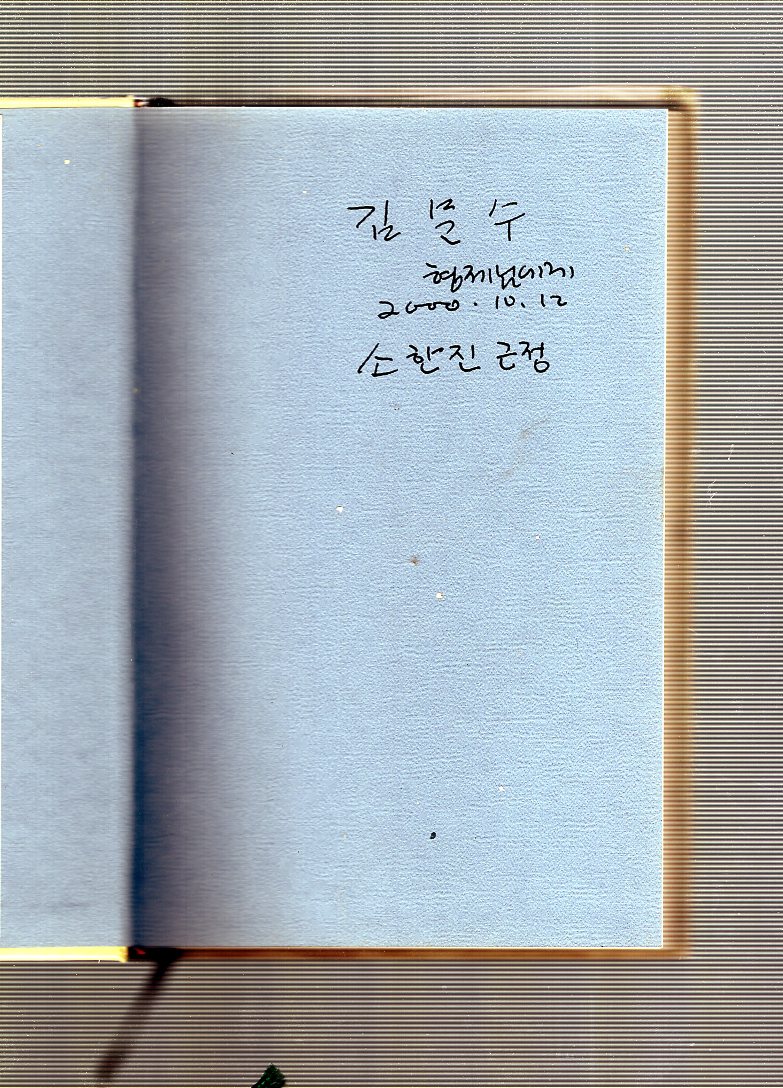 김 문 수
형제님에게
2000. 10. 12
소한진 근정